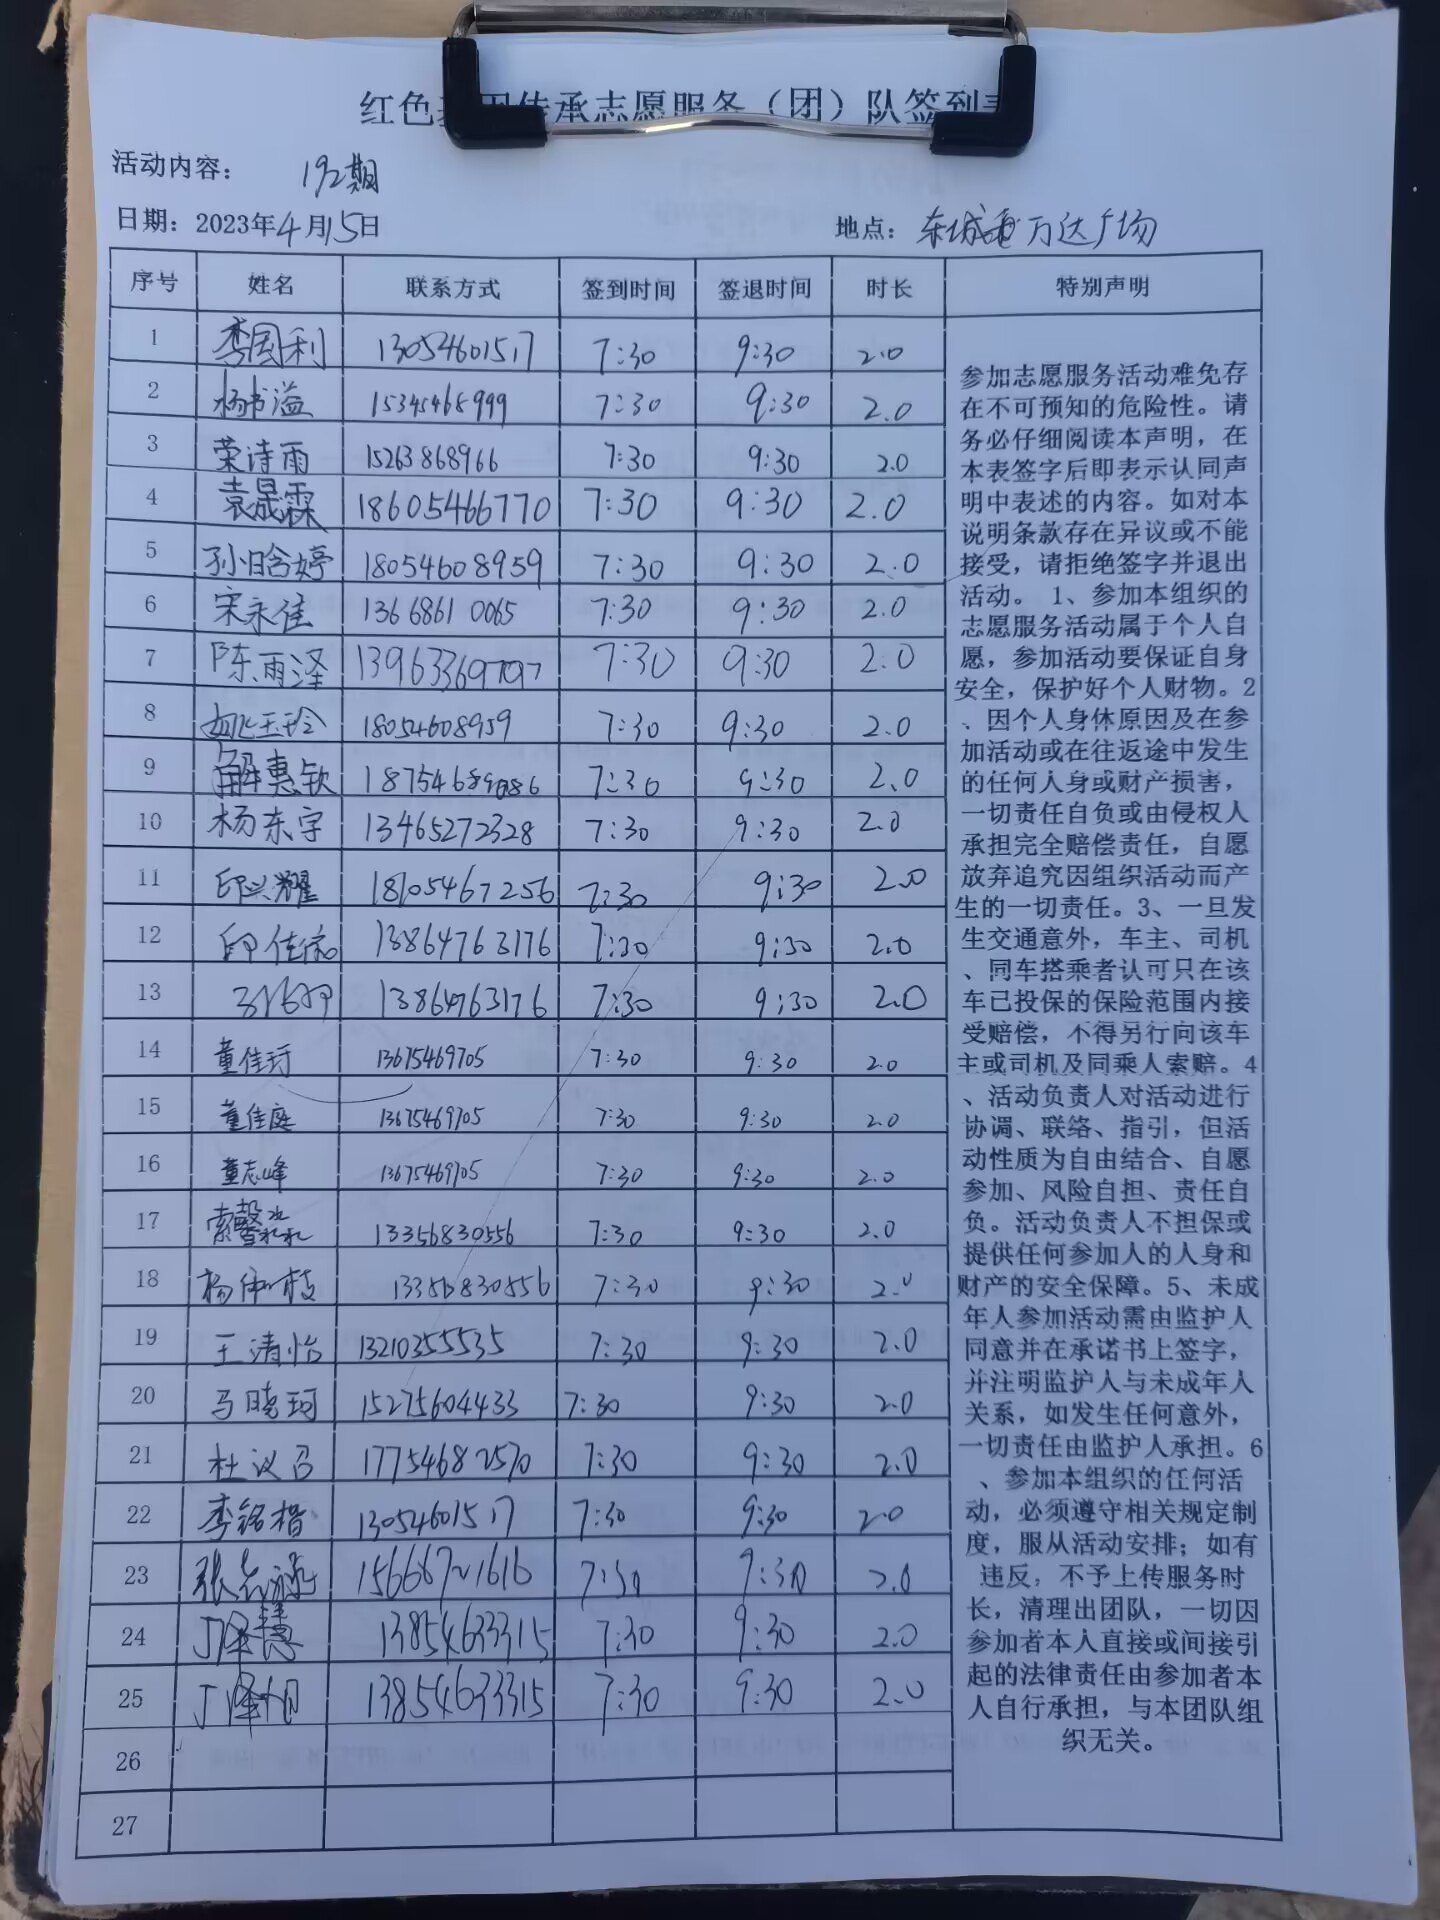 红色基因传承志愿服务（团）队签到表
活动内容： 192期
日期：2023年4月15日 地点：东城 万达广场
序号 姓名 联系方式 签到时间 签退时间 时长 特别声明
1 李国利 13054601517 7:30 9:30 2.0
2 杨书溢 15345468999 7:30 9:30 2.0
3 荣诗雨 15263868966 7:30 9:30 2.0
4 袁晟霖 18605466770 7:30 9:30 2.0
5 孙晗婷 18054608959 7:30 9:30 2.0
6 宋永佳 13668610065 7:30 9:30 2.0
7 陈雨泽 13963369797 7:30 9:30 2.0
8 姚玉玲 18054608959 7:30 9:30 2.0
9 解惠钦 7:30 9:30 2.0
10 杨东宇 13465272328 7:30 9:30 2.0
11 印兴耀 18105467256 7:30 9:30 2.0
12 印佳 13864763176 7:30 9:30 2.0
13 13864763176 7:30 9:30 2.0
14 董佳玗 13675469705 7:30 9:30 2.0
15 董佳庭 13675469705 7:30 9:30 2.0
16 董志峰 13675469705 7:30 9:30 2.0
17 索馨淼 13356830556 7:30 9:30 2.0
18 杨 枝 13356830556 7:30 9:30 2.0
19 王清怡 13210355535 7:30 9:30 2.0
20 马晓珂 15275604433 7:30 9:30 2.0
21 杜议召 17754682570 7:30 9:30 2.0
22 李铭楷 13054601517 7:30 9:30 2.0
23 张 7:30 9:30 2.0
24 丁泽慧 13854633315 7:30 9:30 2.0
25 丁泽旭 13854633315 7:30 9:30 2.0
26
27
参加志愿服务活动难免存
在不可预知的危险性。请
务必仔细阅读本声明，在
本表签字后即表示认同声
明中表述的内容。如对本
说明条款存在异议或不能
接受，请拒绝签字并退出
活动。1、参加本组织的
志愿服务活动属于个人自
愿，参加活动要保证自身
安全，保护好个人财物。2
、因个人身体原因及在参
加活动或在往返途中发生
的任何人身或财产损害，
一切责任自负或由侵权人
承担完全赔偿责任，自愿
放弃追究因组织活动而产
生的一切责任。3、一旦发
生交通意外，车主、司机
、同车搭乘者认可只在该
车已投保的保险范围内接
受赔偿，不得另行向该车
主或司机及同乘人索赔。4
、活动负责人对活动进行
协调、联络、指引，但活
动性质为自由结合、自愿
参加、风险自担、责任自
负。活动负责人不担保或
提供任何参加人的人身和
财产的安全保障。5、未成
年人参加活动需由监护人
同意并在承诺书上签字，
并注明监护人与未成年人
关系，如发生任何意外，
一切责任由监护人承担。6
、参加本组织的任何活
动，必须遵守相关规定制
度，服从活动安排；如有
违反，不予上传服务时
长，清理出团队，一切因
参加者本人直接或间接引
起的法律责任由参加者本
人自行承担，与本团队组
织无关。